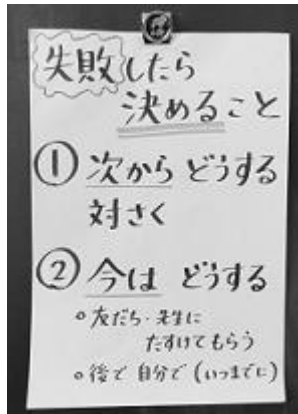 失敗したら
決めること
① 次から どうする
対さく
② 今は どうする
○ 友だち・先生に
たすけてもらう
○ 後で 自分で (いつまでに)